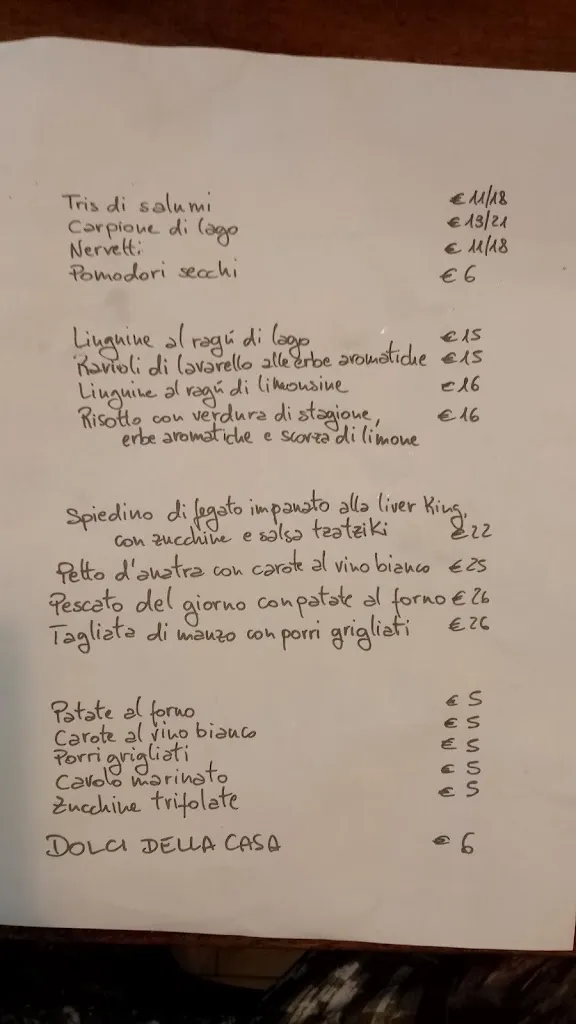 Tris di salumi € 11/18
Carpione di lago € 13/21
Nervetti € 11/18
Pomodori secchi € 6
Linguine al ragú di lago € 15
Ravioli di lavarello alle erbe aromatiche € 15
Linguine al ragú di limousine € 16
Risotto con verdura di stagione, € 16
erbe aromatiche e scorza di limone
Spiedino di fegato impanato alla liver King,
con zucchine e salsa tzatziki € 22
Petto d'anatra con carote al vino bianco € 25
Pescato del giorno con patate al forno € 26
Tagliata di manzo con porri grigliati € 26
Patate al forno € 5
Carote al vino bianco € 5
Porri grigliati € 5
Cavolo marinato € 5
Zucchine trifolate € 5
DOLCI DELLA CASA € 6